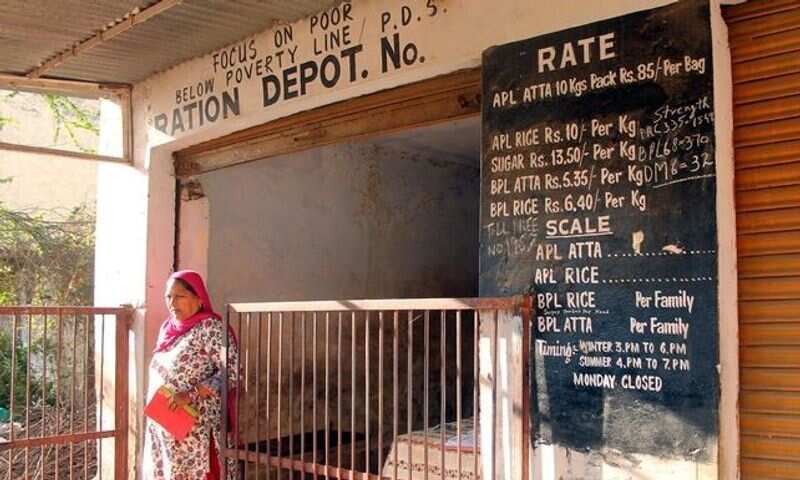 FOCUS ON POOR
BELOW POVERTY LINE / P.D.S.
RATION DEPOT. No.
RATE
APL ATTA 10 Kgs Pack Rs. 85/- Per Bag
APL RICE Rs. 10/- Per Kg
SUGAR Rs. 13.50/- Per Kg
BPL ATTA Rs. 5.35/- Per Kg
BPL RICE Rs. 6.40/- Per Kg
Strength
BPL 68-370
SCALE
APL ATTA
APL RICE
BPL RICE Per Family
BPL ATTA Per Family
Timing:- WINTER 3.PM TO 6 PM
SUMMER 4.PM TO 7.PM
MONDAY CLOSED